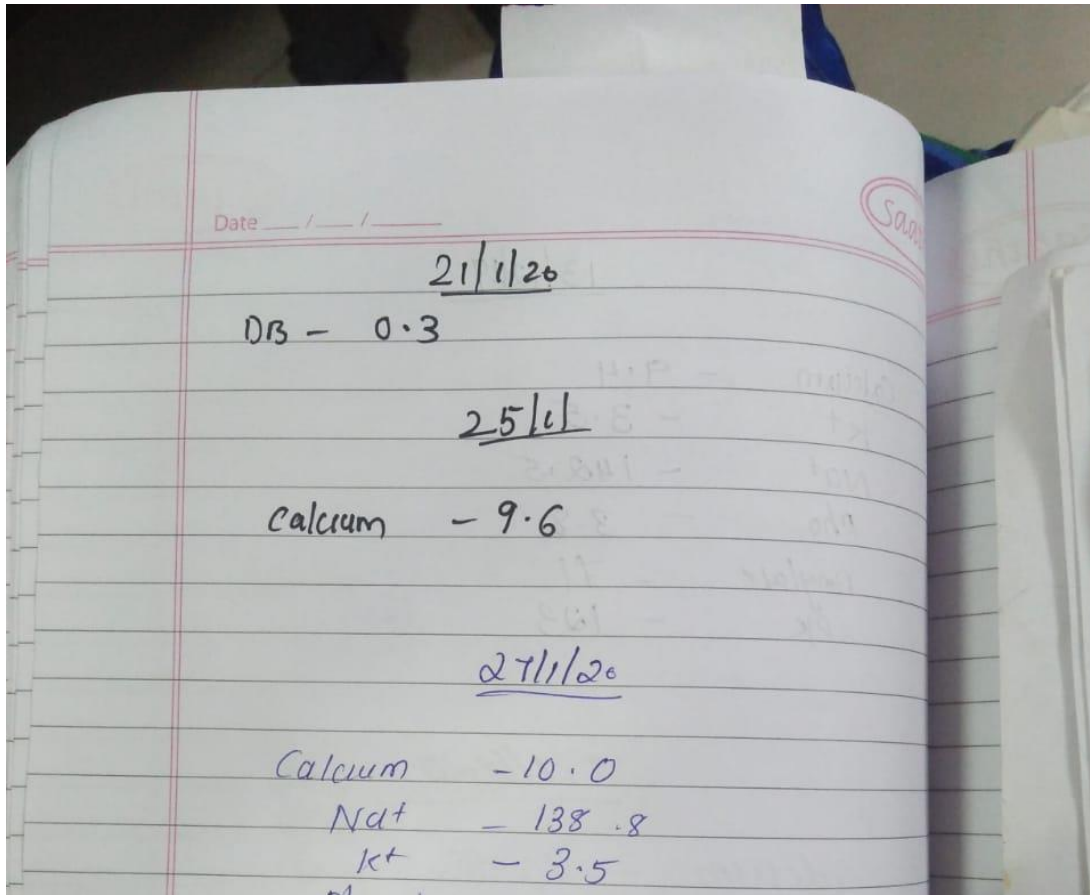 Date __/__/____
21/1/20
DB - 0.3
25/1/
Calcium - 9.6
27/1/20
Calcium - 10.0
Na+ - 138.8
K+ - 3.5